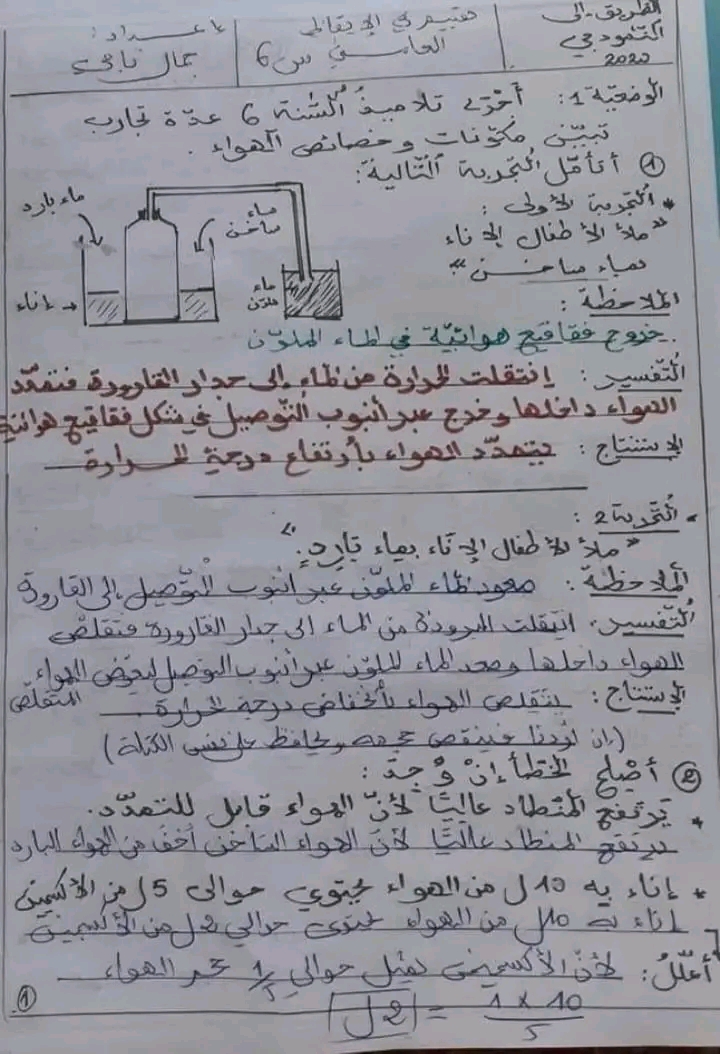 الطريق إلى
النموذجي
2020
تقييم في الإيقاظ
العلمي س 6
إعداد:
جمال ناجي
الوضعيّة 1: أجرى تلاميذُ السّنة 6 عدّة تجارب
تبيّن مكوّنات وخصائص الهواء.
① أتأمّل التجربة التّالية:
* التّجربة الأولى:
"ملأ الأطفال الإناء
بماء ساخن"
ماء بارد
ماء
ساخن
إناء
ماء
ملوّن
الملاحظة:
خروج فقاقيع هوائيّة في الماء الملوّن.
التّفسير: انتقلت الحرارة من الماء إلى جدار القارورة فتمدّد
الهواء داخلها وخرج عبر أنبوب التّوصيل في شكل فقاقيع هوائية
الإستنتاج: يتمدّد الهواء بارتفاع درجة الحرارة
* التّجربة 2:
"ملأ الأطفال الإناء بماء باردٍ."
الملاحظة: صعود الماء الملوّن عبر أنبوب التّوصيل إلى القارورة
التّفسير: انتقلت البرودة من الماء إلى جدار القارورة فتقلّص
الهواء داخلها وصعد الماء الملوّن عبر أنبوب التوصيل ليعوّض الهواء
المتقلّص
الإستنتاج: يتقلص الهواء بانخفاض درجة الحرارة
(إن بردنا فينقص حجمه ويحافظ على نفس الكتلة)
② أصلح الخطأ إنْ وُجدَ:
* يرتفع المُنطاد عاليًا لأنّ الهواء قابل للتمدّد.
يرتفع المنطاد عاليًا لأنّ الهواء السّاخن أخفّ من الهواء البارد
* إناء به 10 ل من الهواء يحتوي حوالي 5 ل من الأكسجين
إناء به 10 ل من الهواء يحتوي حوالي 2 ل من الأكسجين
أعلّلُ: لأنّ الأكسجين يمثل حوالي 1/5 حجم الهواء
1 × 10 / 5 = 2 ل
①